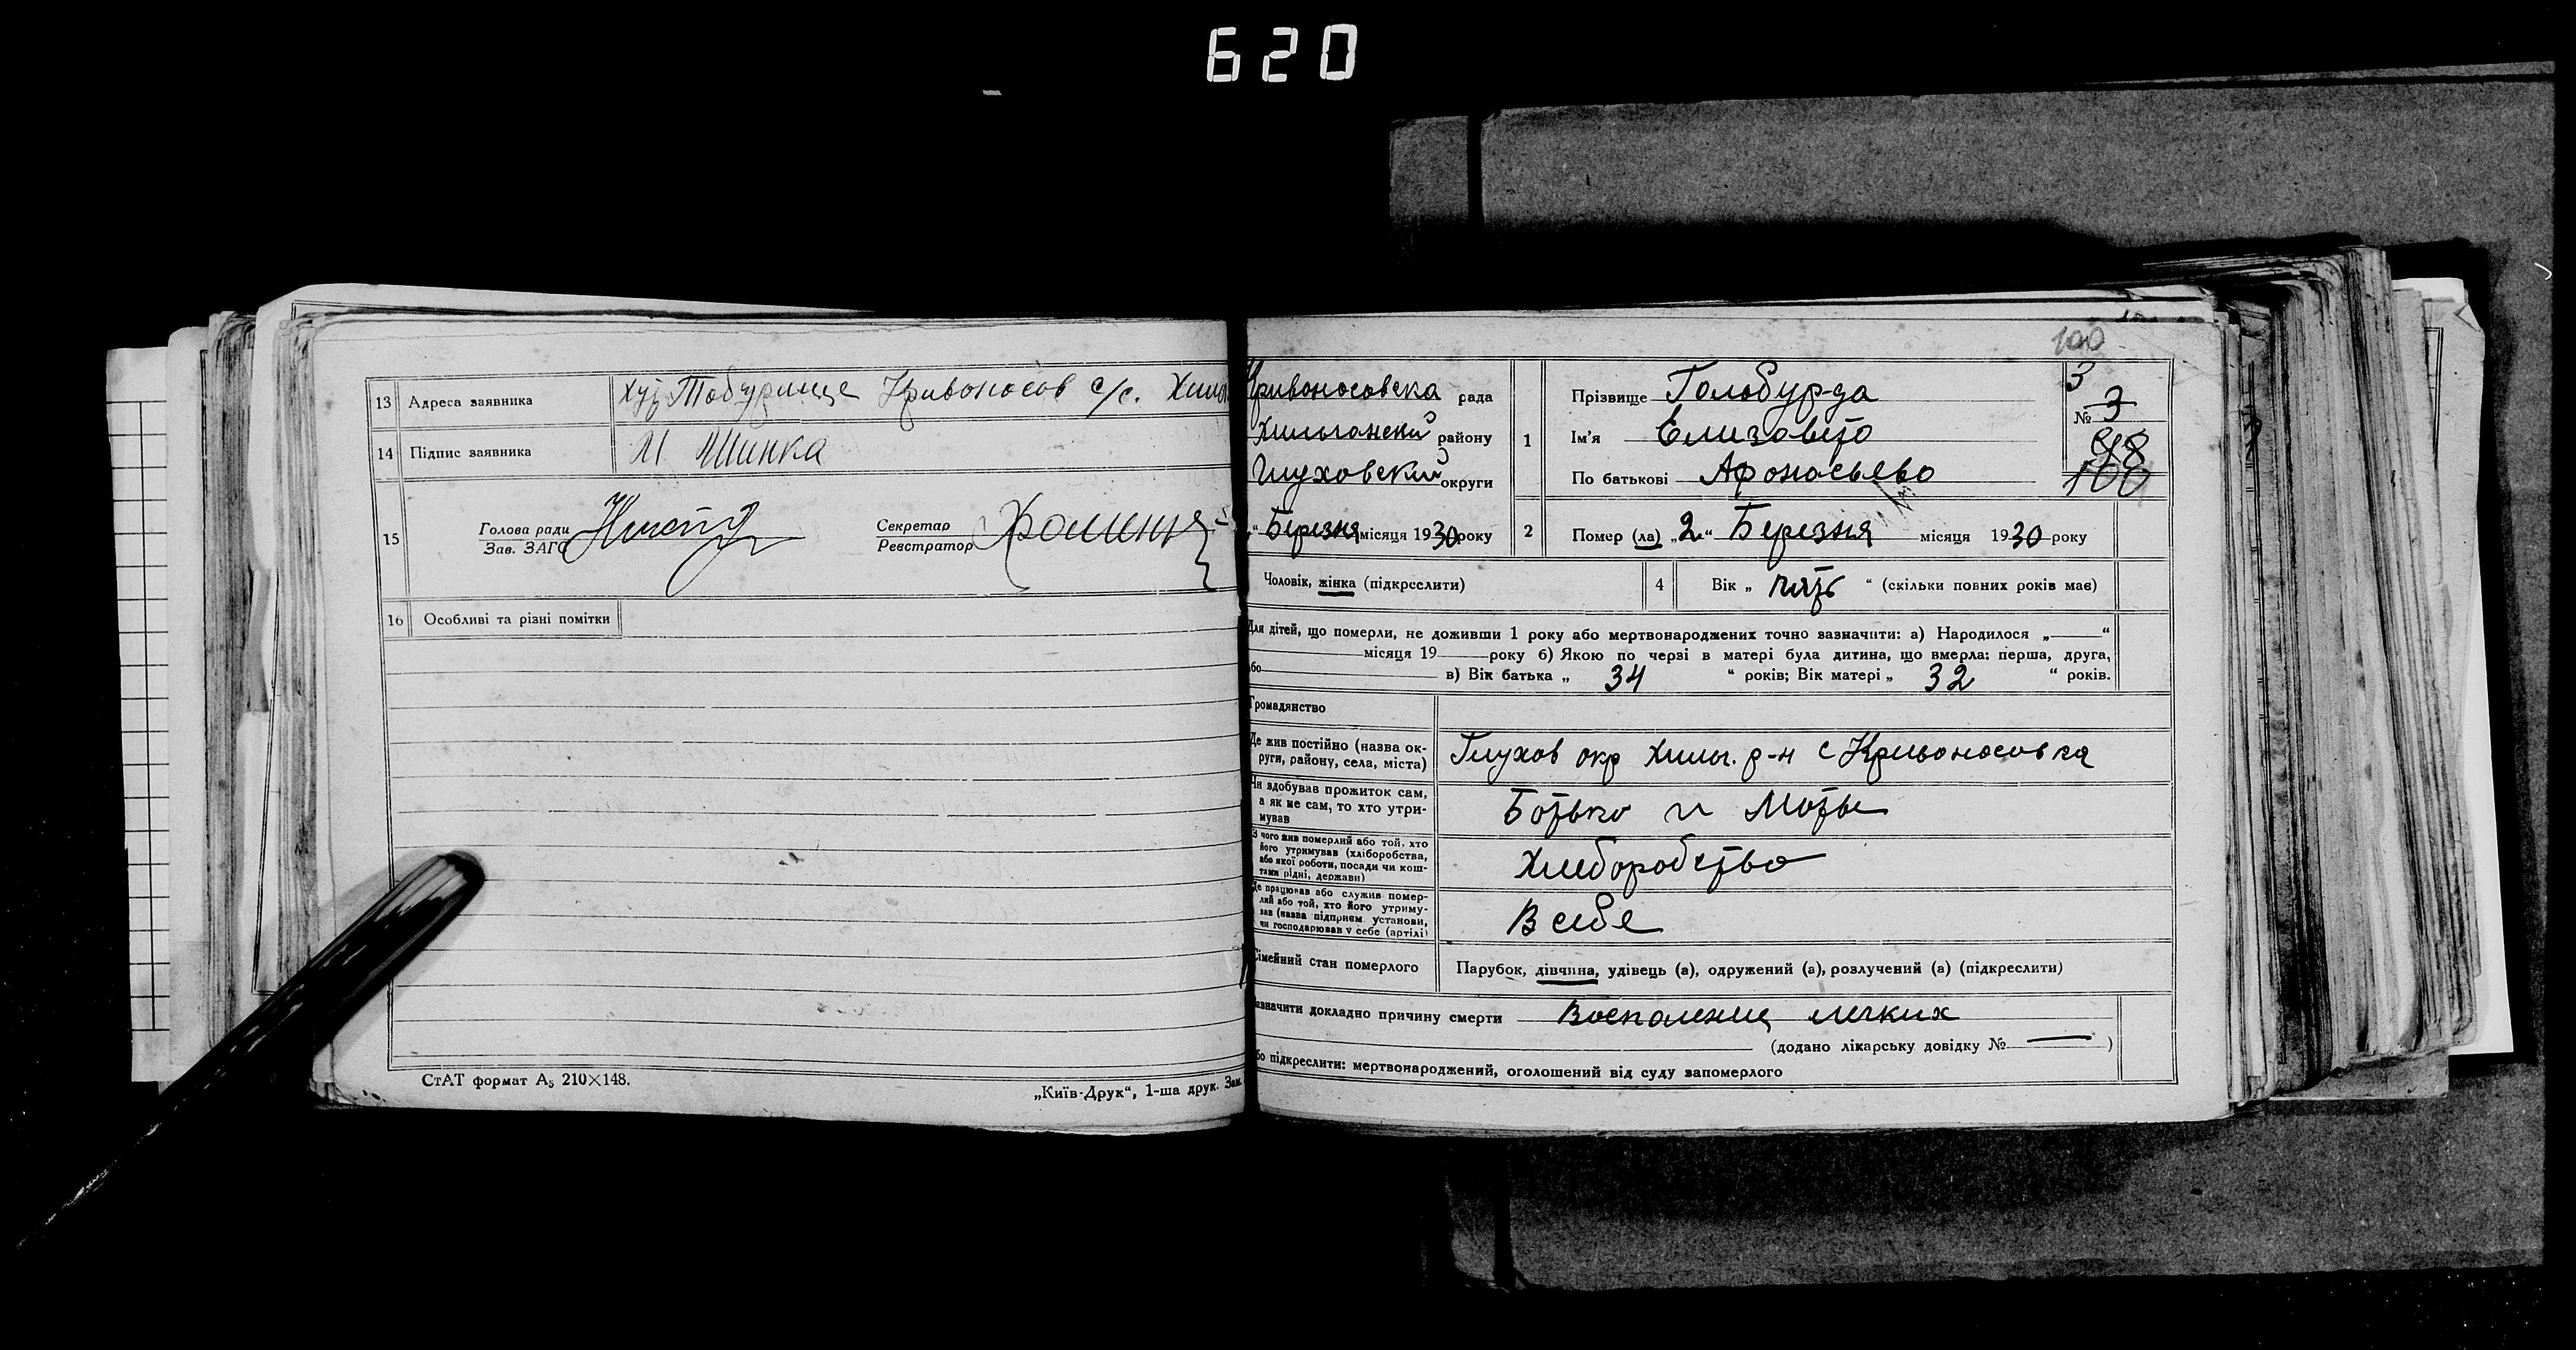 620
13 Адреса заявника Хут Табурище Кривоносов с/с.
14 Підпис заявника И Шинка
15 Голова ради
Зав. ЗАГС
Секретар
Реєстратор
16 Особливі та різні помітки
СтАТ формат А5 210×148.
„Київ-Друк“, 1-ша друк. Зам.
100
Кривоносовска рада
Хильчанский району
Глуховский округи
Березня місяця 1930 року
1 Прізвище Голобурда
Ім'я Елизавета
По батькові Афонасьева
3
№ 3
98
100
2 Помер (ла) „2“ Березня місяця 1930 року
Чоловік, жінка (підкреслити)
4 Вік „ пять “ (скільки повних років має)
Для дітей, що померли, не доживши 1 року або мертвонароджених точно зазначити: а) Народилося „ “
місяця 19 року б) Якою по черзі в матері була дитина, що вмерла: перша, друга,
або в) Вік батька „ 34 “ років; Вік матері „ 32 “ років.
Громадянство
Де жив постійно (назва ок-
руги, району, села, міста)
Глухов окр Хильч. р-н с Кривоносовка
Чи здобував прожиток сам,
а як не сам, то хто утри-
мував
Батько и Мать
З чого жив померлий або той, хто
його утримував (хліборобства,
або якої роботи, посади чи кош-
тами рідні, держави)
Хлеборобство
Де працював або служив помер-
лий або той, хто його утриму-
вав (назва підприєм. установи,
чи господарював у себе (артілі)
В себе
Сімейний стан померлого
Парубок, дівчина, удівець (а), одружений (а), розлучений (а) (підкреслити)
Зазначити докладно причину смерти Воспаление легких
(додано лікарську довідку № — )
або підкреслити: мертвонароджений, оголошений від суду запомерлого